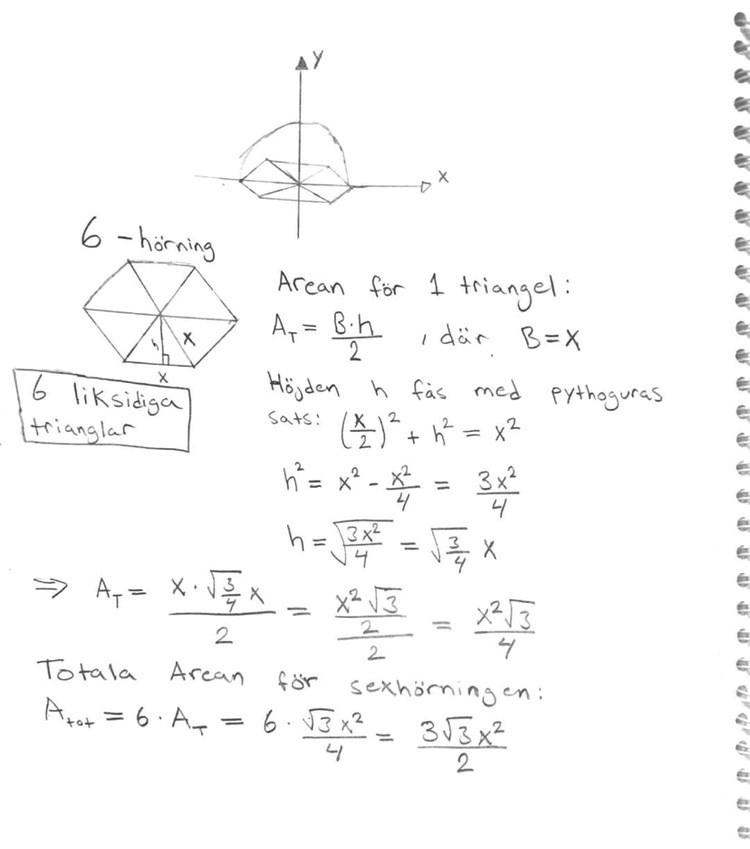 y
x
6 - hörning
h
x
x
6 liksidiga
trianglar
Arean för 1 triangel:
A_T = B·h/2 , där B = x
Höjden h fås med pythoguras
sats: (x/2)² + h² = x²
h² = x² - x²/4 = 3x²/4
h = √(3x²/4) = √(3/4) x
⇒ A_T = (x · √(3/4) x)/2 = ((x²√3)/2)/2 = x²√3/4
Totala Arean för sexhörningen:
A_tot = 6 · A_T = 6 · √3x²/4 = 3√3x²/2